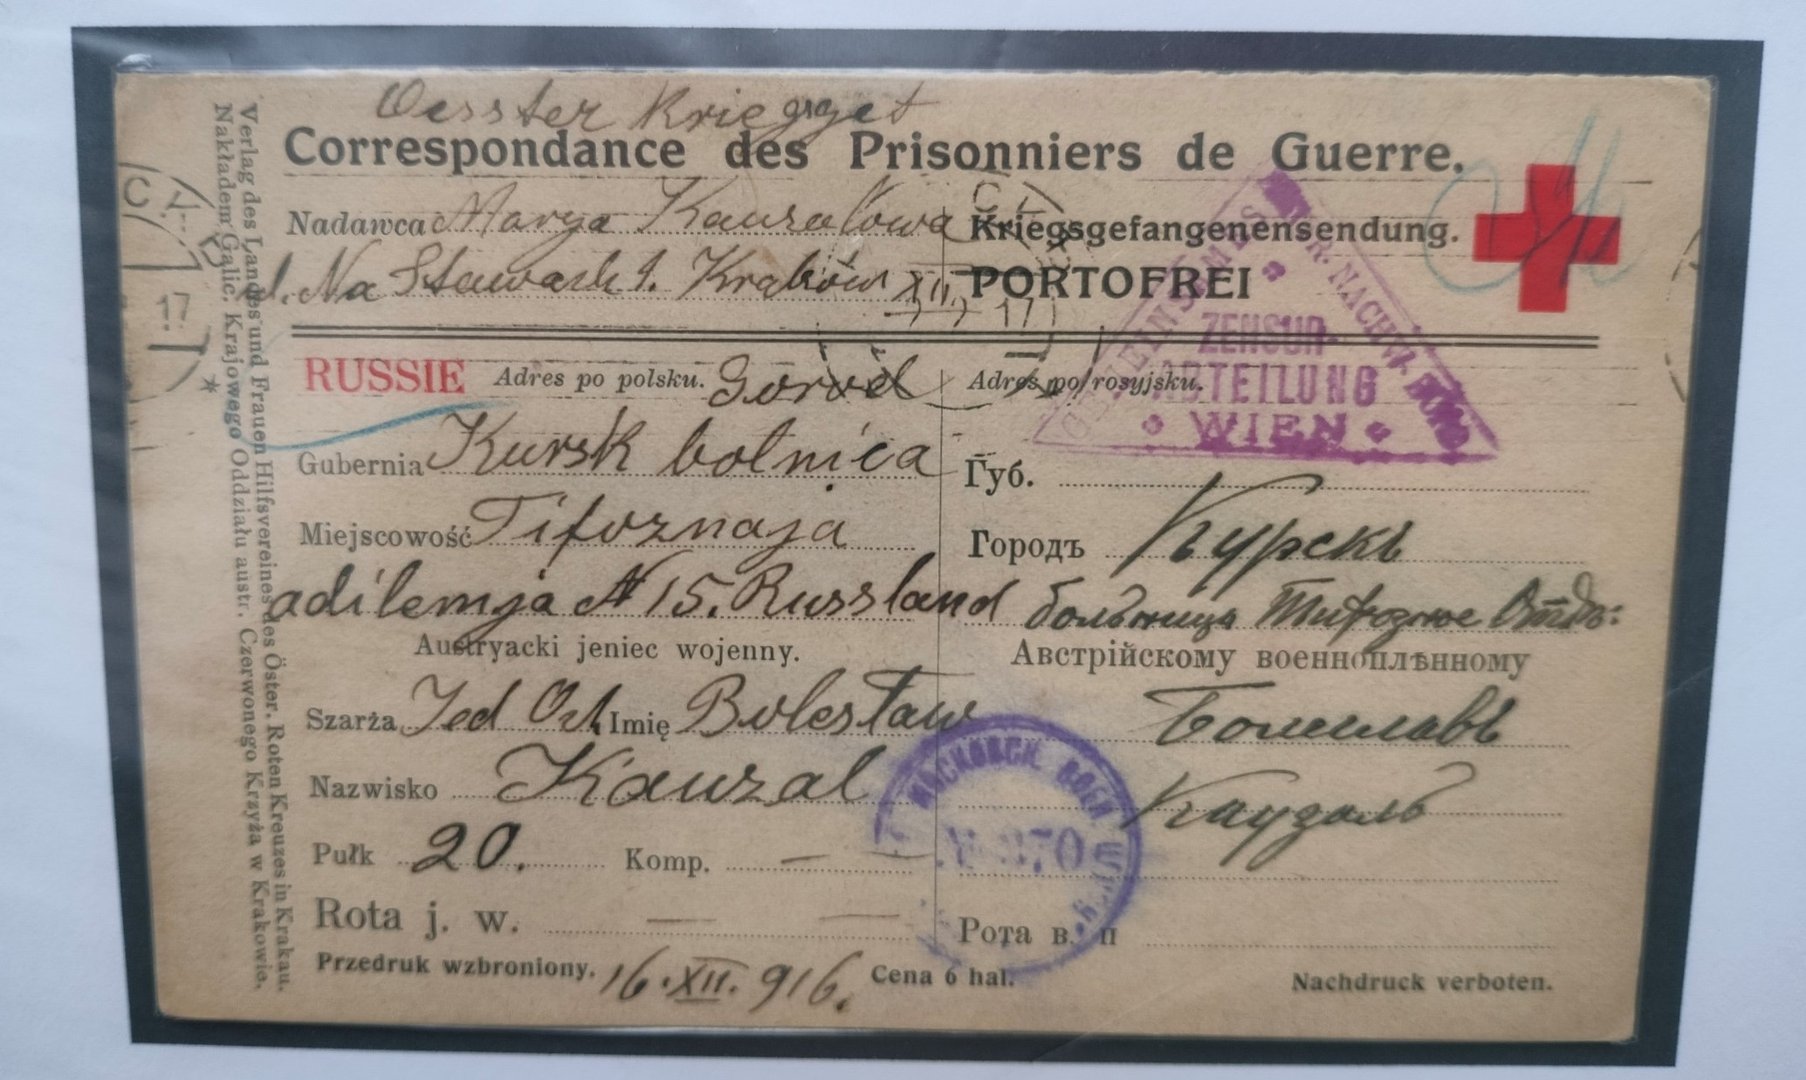 Oesster Kriegsget
Correspondance des Prisonniers de Guerre.
Nadawca Marya Kauzalowa
Kriegsgefangenensendung.
Na Stawach 1. Kraków XII.
PORTOFREI
ZENSUR-
ABTEILUNG
WIEN
RUSSIE Adres po polsku. Gorod
Adres po rosyjsku.
Gubernia Kursk bolnica
Губ.
Miejscowość Tifoznaja
Городъ Курскъ
adilemja N 15. Russland
больница Тифозное Отдѣ:
Austryacki jeniec wojenny.
Австрійскому военноплѣнному
Szarża Jed Och Imię Bolesław
Болеславъ
Nazwisko Kauzal
Каузаль
Pułk 20. Komp. —
МОСКОВСК. ВОЕН
№ 370
Rota j. w. — —
Рота в. п
Przedruk wzbroniony. 16.XII.916. Cena 6 hal.
Nachdruck verboten.
Verlag des Landes und Frauen Hilfsvereines des Öster. Roten Kreuzes in Krakau.
Nakładem Galic. Krajowego Oddziału austr. Czerwonego Krzyża w Krakowie.
17
17